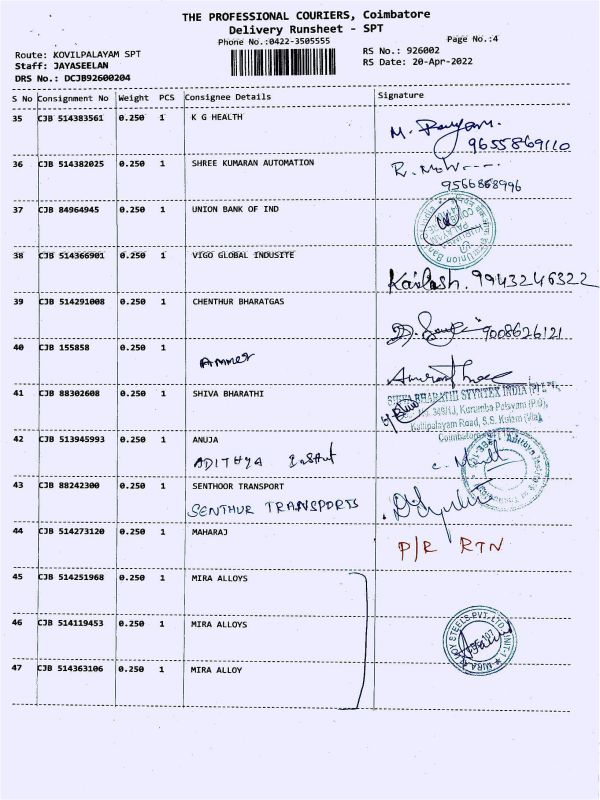 THE PROFESSIONAL COURIERS, Coimbatore
Delivery Runsheet - SPT
Phone No.:0422-3505555
Page No.:4
Route: KOVILPALAYAM SPT
RS No.: 926002
Staff: JAYASEELAN
RS Date: 20-Apr-2022
DRS No.: DCJB92600204
S No Consignment No Weight PCS Consignee Details Signature
35 CJB 514383561 0.250 1 K G HEALTH
9655869110
36 CJB 514382025 0.250 1 SHREE KUMARAN AUTOMATION
9566868996
37 CJB 84964945 0.250 1 UNION BANK OF IND
38 CJB 514366901 0.250 1 VIGO GLOBAL INDUSITE
Kailash. 9943246322
39 CJB 514291008 0.250 1 CHENTHUR BHARATGAS
9008626121
40 CJB 155858 0.250 1
41 CJB 88302608 0.250 1 SHIVA BHARATHI
SHIVA BHARATHI SYNTEX INDIA (P) LTD
Kurumba Palayam (P.O),
Kalipalayam Road, S.S. Kulam (Via),
Coimbatore
42 CJB 513945993 0.250 1 ANUJA
ADITHYA
43 CJB 88242300 0.250 1 SENTHOOR TRANSPORT
SENTHUR TRANSPORTS
44 CJB 514273120 0.250 1 MAHARAJ
P/R RTN
45 CJB 514251968 0.250 1 MIRA ALLOYS
46 CJB 514119453 0.250 1 MIRA ALLOYS
47 CJB 514363106 0.250 1 MIRA ALLOY